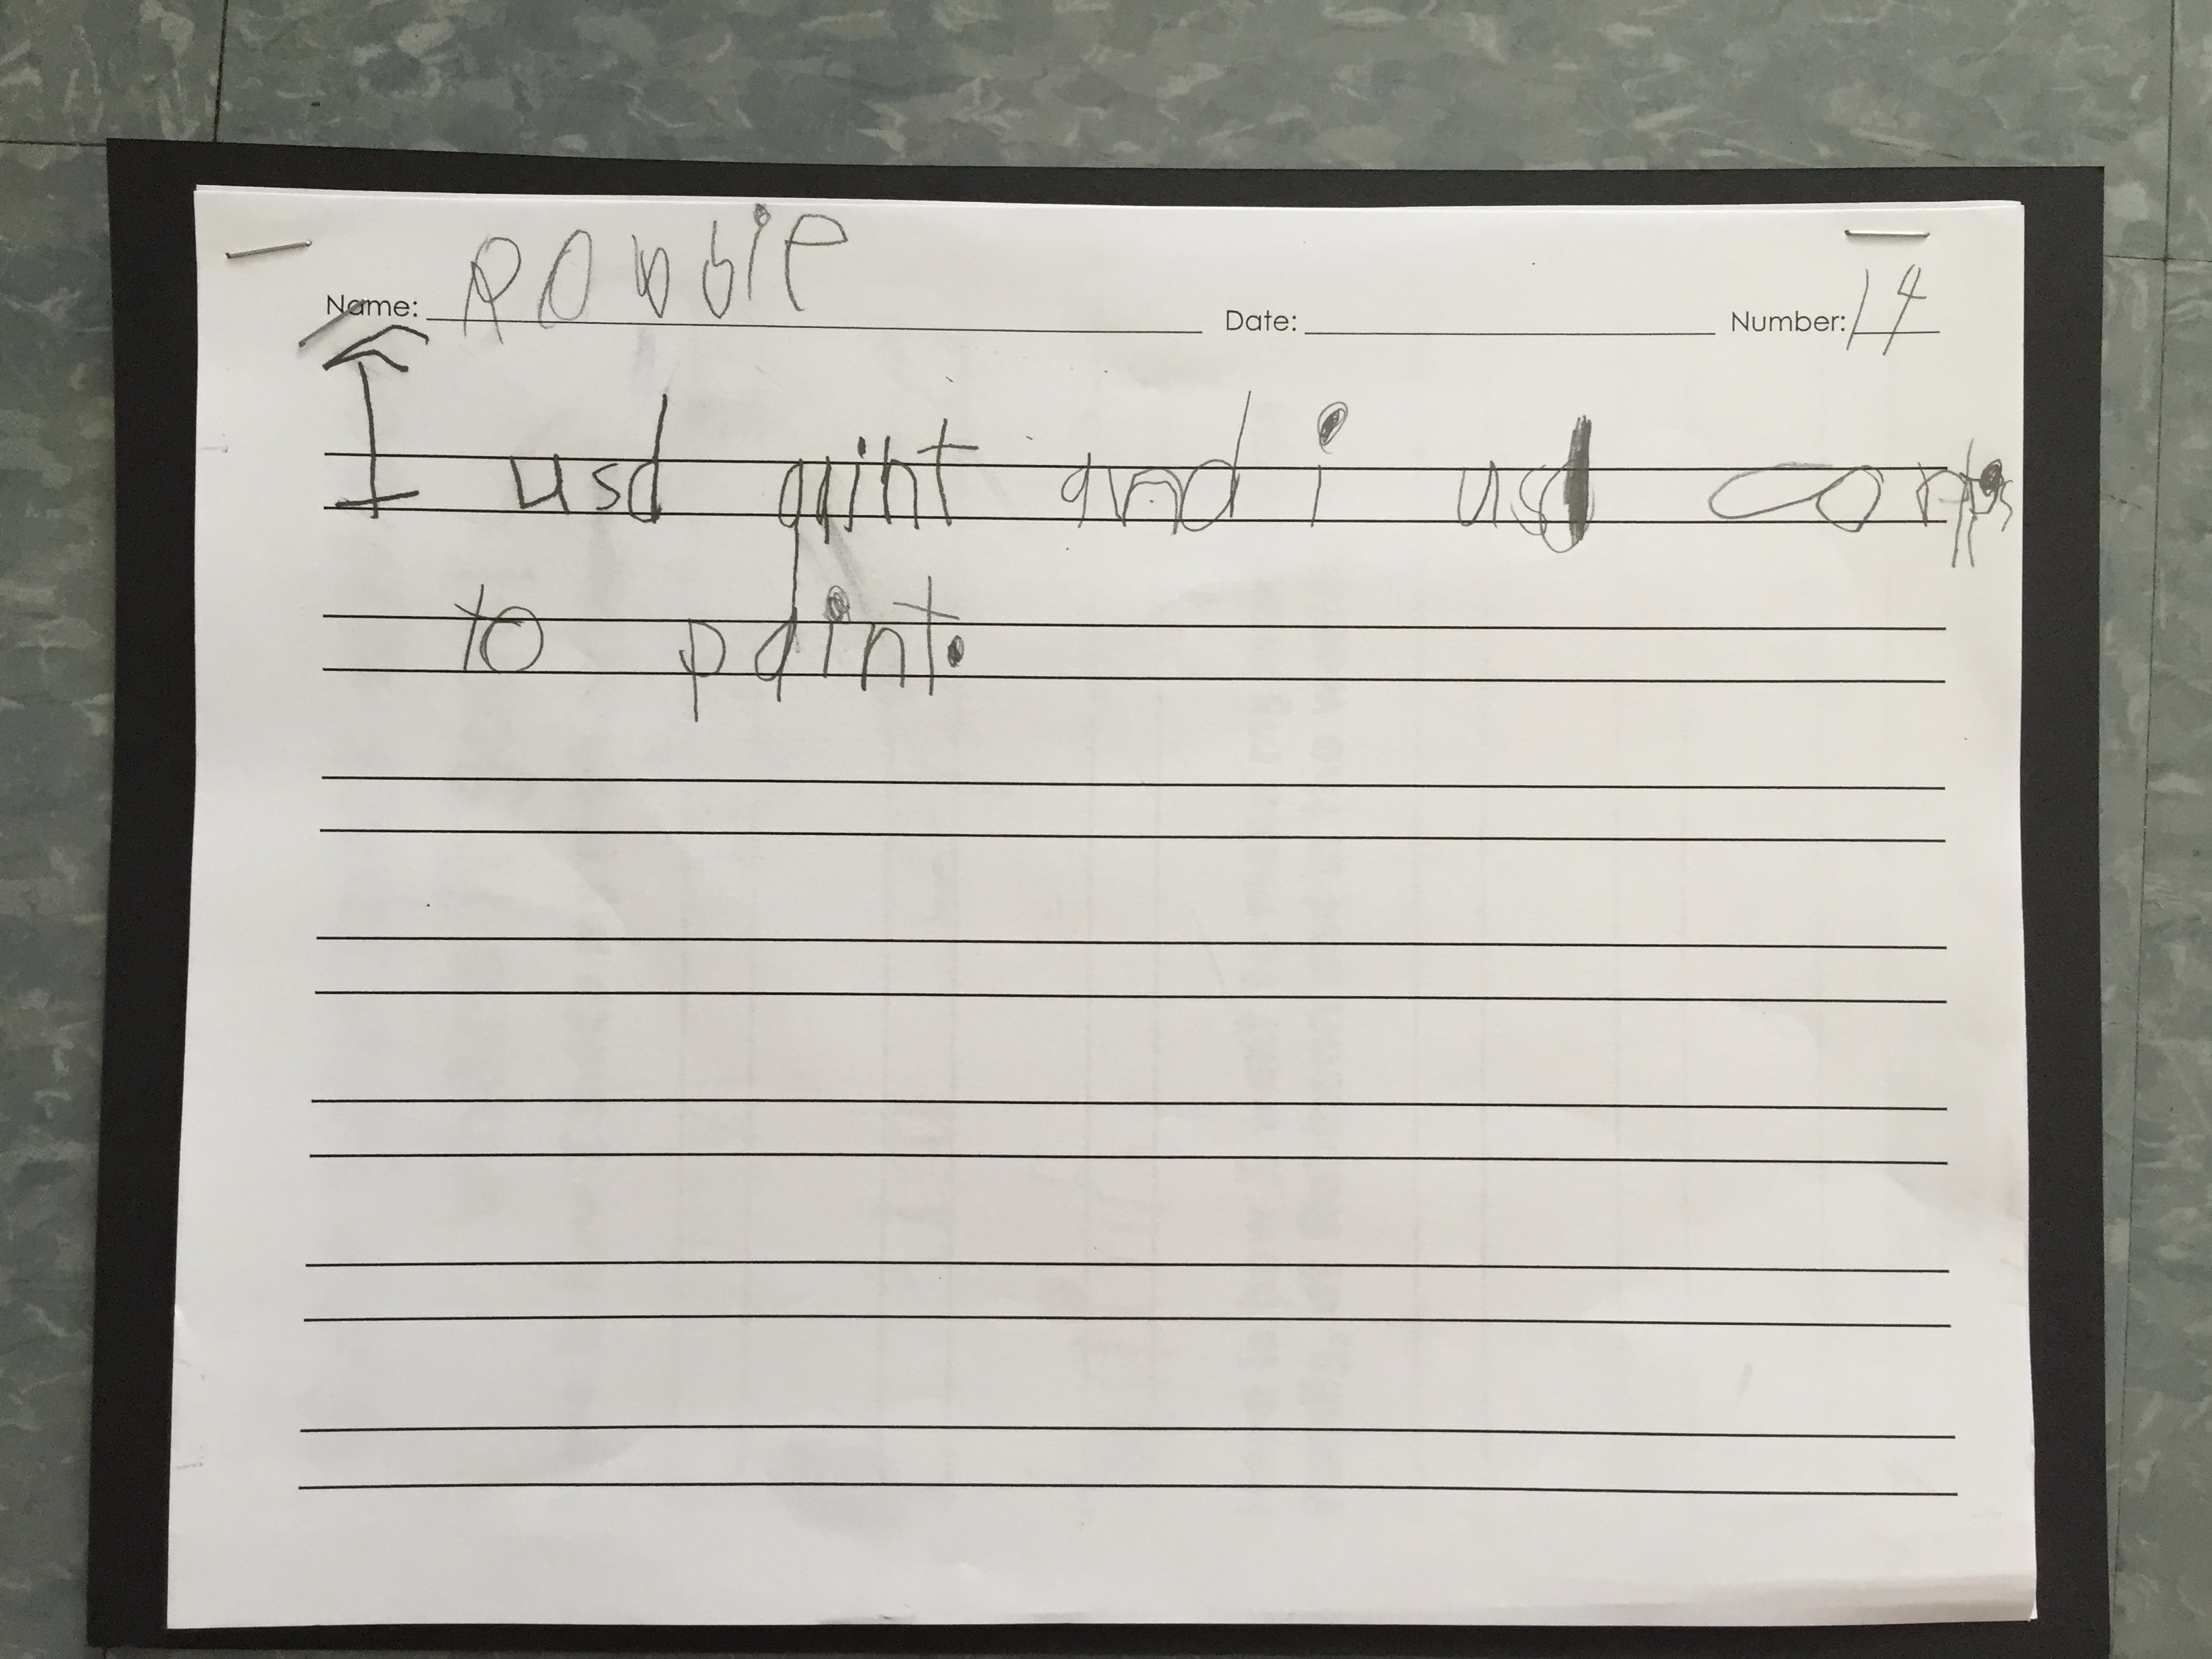 Name: Robbie Date: Number: 14
I usd paint and i usd
to paint.